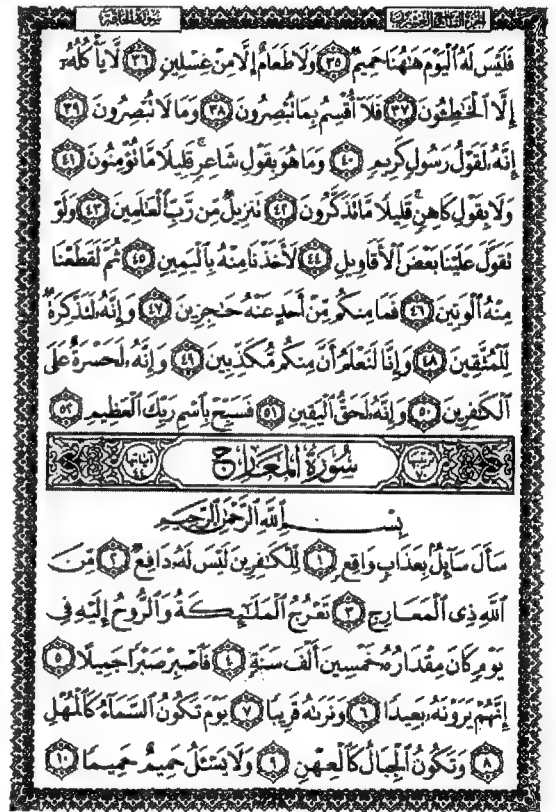 سورة الحاقة
الجزء التاسع والعشرون
فَلَيْسَ لَهُ ٱلْيَوْمَ هَٰهُنَا حَمِيمٌ ﴿٣٥﴾ وَلَا طَعَامٌ إِلَّا مِنْ غِسْلِينٍ ﴿٣٦﴾ لَّا يَأْكُلُهُۥٓ
إِلَّا ٱلْخَٰطِـُٔونَ ﴿٣٧﴾ فَلَآ أُقْسِمُ بِمَا تُبْصِرُونَ ﴿٣٨﴾ وَمَا لَا تُبْصِرُونَ ﴿٣٩﴾
إِنَّهُۥ لَقَوْلُ رَسُولٍ كَرِيمٍ ﴿٤٠﴾ وَمَا هُوَ بِقَوْلِ شَاعِرٍ ۚ قَلِيلًا مَّا تُؤْمِنُونَ ﴿٤١﴾
وَلَا بِقَوْلِ كَاهِنٍ ۚ قَلِيلًا مَّا تَذَكَّرُونَ ﴿٤٢﴾ تَنزِيلٌ مِّن رَّبِّ ٱلْعَٰلَمِينَ ﴿٤٣﴾ وَلَوْ
تَقَوَّلَ عَلَيْنَا بَعْضَ ٱلْأَقَاوِيلِ ﴿٤٤﴾ لَأَخَذْنَا مِنْهُ بِٱلْيَمِينِ ﴿٤٥﴾ ثُمَّ لَقَطَعْنَا
مِنْهُ ٱلْوَتِينَ ﴿٤٦﴾ فَمَا مِنكُم مِّنْ أَحَدٍ عَنْهُ حَٰجِزِينَ ﴿٤٧﴾ وَإِنَّهُۥ لَتَذْكِرَةٌ
لِّلْمُتَّقِينَ ﴿٤٨﴾ وَإِنَّا لَنَعْلَمُ أَنَّ مِنكُم مُّكَذِّبِينَ ﴿٤٩﴾ وَإِنَّهُۥ لَحَسْرَةٌ عَلَى
ٱلْكَٰفِرِينَ ﴿٥٠﴾ وَإِنَّهُۥ لَحَقُّ ٱلْيَقِينِ ﴿٥١﴾ فَسَبِّحْ بِٱسْمِ رَبِّكَ ٱلْعَظِيمِ ﴿٥٢﴾
ترتيبها ٧٠ سُورَةُ المَعَارِجِ آياتها ٤٤
بِسْمِ ٱللَّهِ ٱلرَّحْمَٰنِ ٱلرَّحِيمِ
سَأَلَ سَآئِلٌۢ بِعَذَابٍ وَاقِعٍ ﴿١﴾ لِّلْكَٰفِرِينَ لَيْسَ لَهُۥ دَافِعٌ ﴿٢﴾ مِّنَ
ٱللَّهِ ذِى ٱلْمَعَارِجِ ﴿٣﴾ تَعْرُجُ ٱلْمَلَٰٓئِكَةُ وَٱلرُّوحُ إِلَيْهِ فِى
يَوْمٍ كَانَ مِقْدَارُهُۥ خَمْسِينَ أَلْفَ سَنَةٍ ﴿٤﴾ فَٱصْبِرْ صَبْرًا جَمِيلًا ﴿٥﴾
إِنَّهُمْ يَرَوْنَهُۥ بَعِيدًا ﴿٦﴾ وَنَرَىٰهُ قَرِيبًا ﴿٧﴾ يَوْمَ تَكُونُ ٱلسَّمَآءُ كَٱلْمُهْلِ
﴿٨﴾ وَتَكُونُ ٱلْجِبَالُ كَٱلْعِهْنِ ﴿٩﴾ وَلَا يَسْـَٔلُ حَمِيمٌ حَمِيمًا ﴿١٠﴾